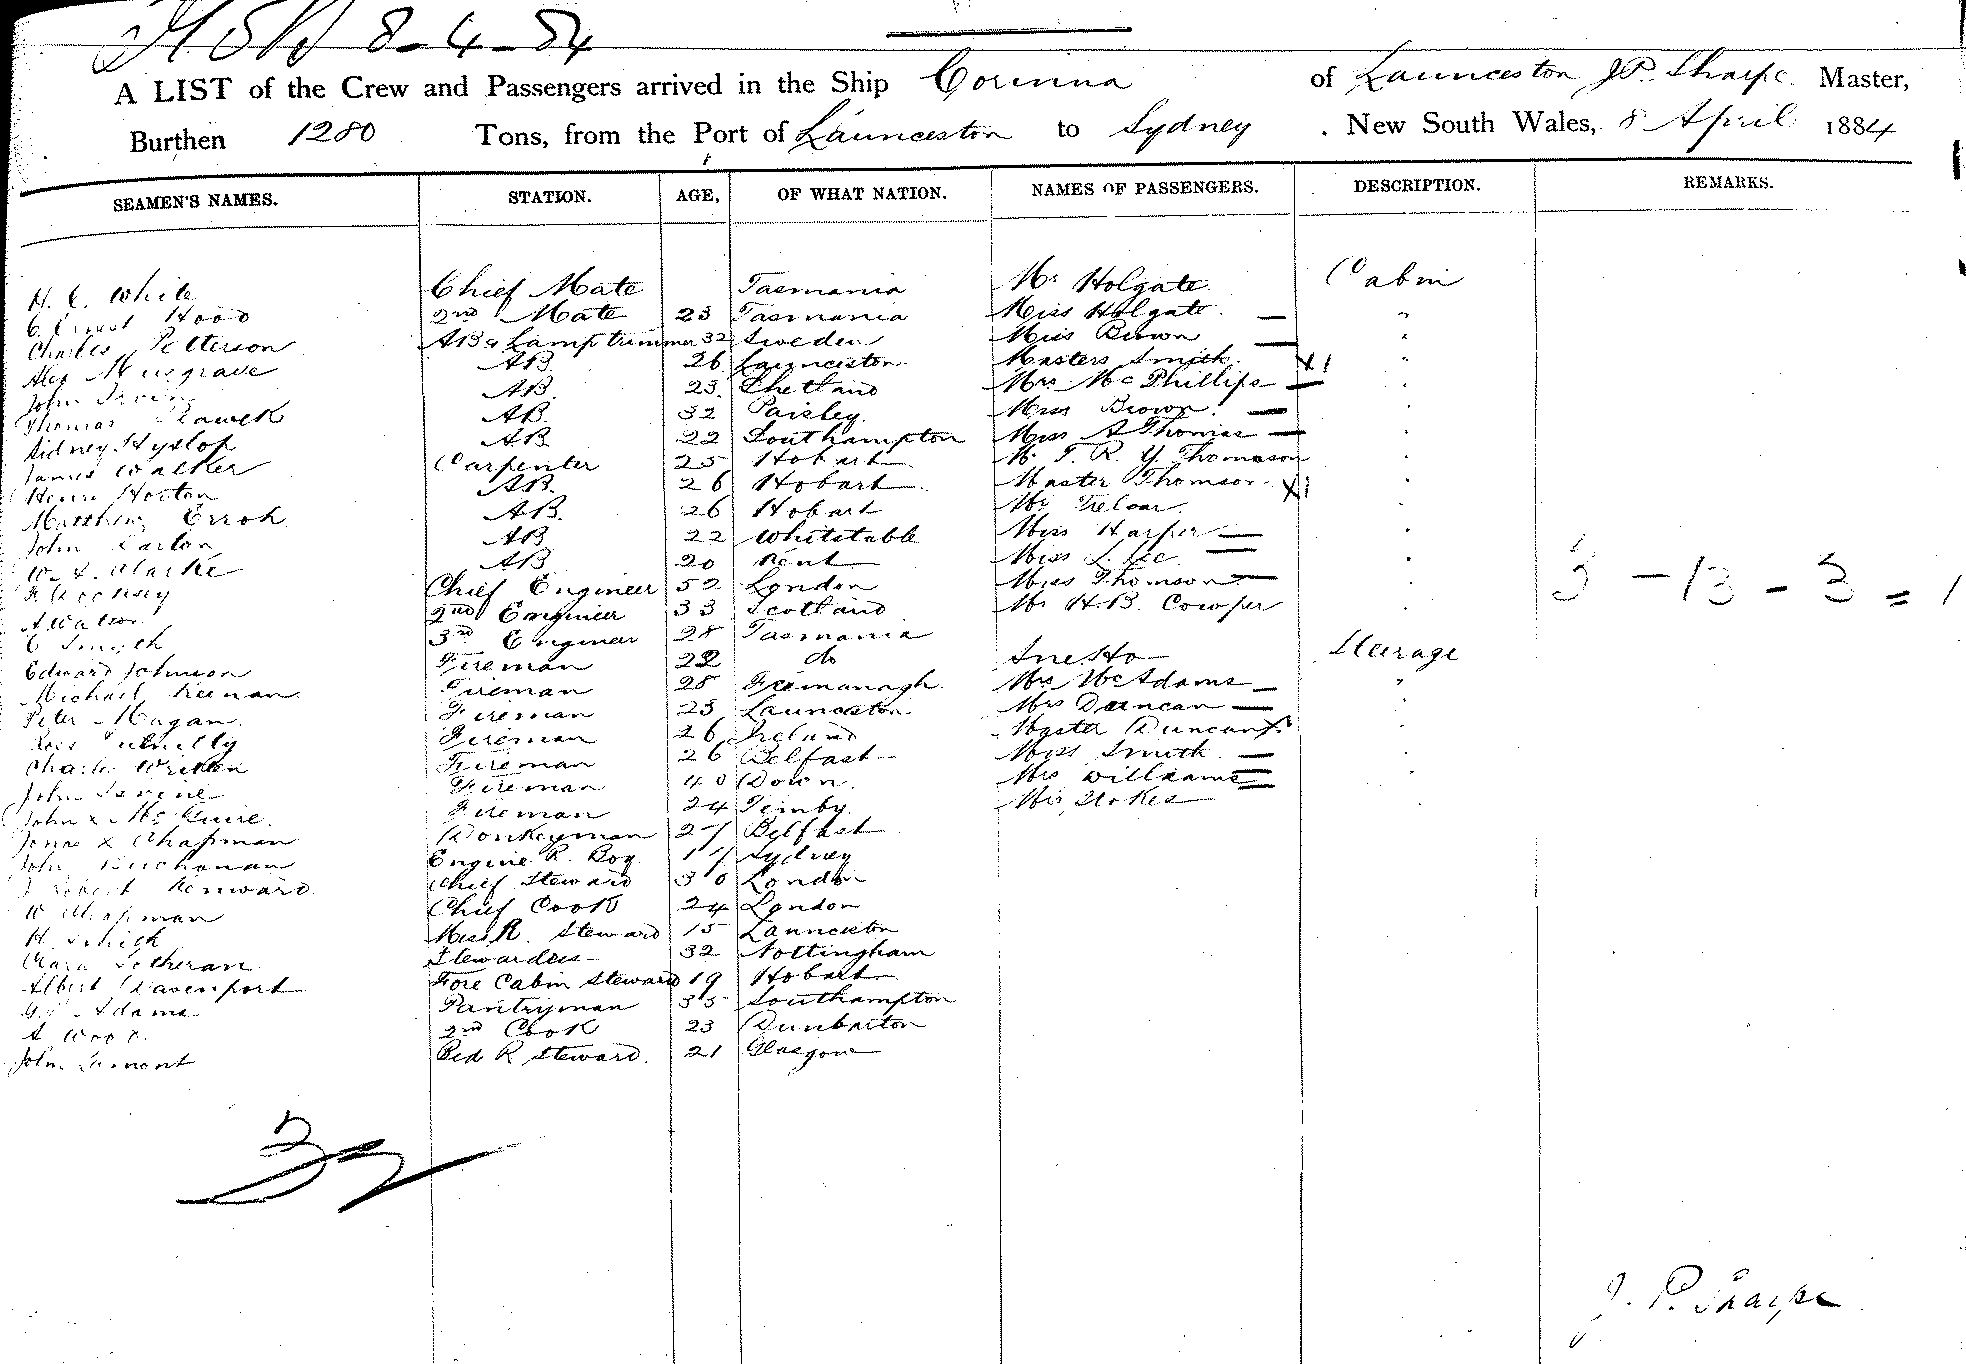 8-4-84
A LIST of the Crew and Passengers arrived in the Ship Corinna of Launceston J P. Sharpe Master,
Burthen 1280 Tons, from the Port of Launceston to Sydney . New South Wales, 8 April 1884
SEAMEN'S NAMES. STATION. AGE, OF WHAT NATION. NAMES OF PASSENGERS. DESCRIPTION. REMARKS.
H. C. White Chief Mate Tasmania Mr Holgate. Cabin
C. Ernest Hood 2nd Mate 23 Tasmania Miss Holgate. — "
Charles Petterson AB & Lamptrimmer 32 Sweden Miss Brown — "
Alex Musgrave AB 26 Launceston Masters Smith. X! "
John Irving AB. 23. Shetland Mrs Mc Phillips — "
Thomas AB. 32 Paisley. Miss Brown. — "
Sidney Hyslop AB 22 Southampton Miss A Thomas — "
James Walker Carpenter 25 Hobart Mr T. R. Y. Thomason "
Henri Horton AB. 26 Hobart. Master Thomson. X! "
Matthew Erroh AB. 26 Hobart Mr Treloar. "
John AB 22 Whitstable Miss Harper — "
W. Clarke AB 20 Kent Miss L. Lee — "
Chief Engineer 52 London Miss Thomson — " 3 - 13 - 3 = 1
A Watson 2nd Engineer 33 Scotland Mr H.B. Cowper "
C Smyth 3rd Engineer 28 Tasmania
Edward Johnson Fireman 22 do Steerage
Michael Keenan Fireman 28 Mrs Mc Adams — "
Peter Magan. Fireman 23 Launceston Mrs Duncan — "
Fireman 26 Ireland Master Duncan X! "
Charles Fireman 26 Belfast Miss Smith — "
John Fireman 40 Down. Mrs Williams — "
John x Mc Guire. Fireman 24 Mr Stokes
x Chapman Donkeyman 27 Belfast
John Buchanan Engine R. Boy 17 Sydney
Robert Kenward Chief Steward 30 London
W Chapman Chief Cook 24 London
H. Mess R. Steward 15 Launceston
Clara Sotheran Stewardess 32 Nottingham
Albert Davenport Fore Cabin Steward 19 Hobart
Adams Pantryman 35 Southampton
A Wood. 2nd Cook 23 Dunbarton
John Lamont Bed R Steward. 21 Glasgow
J. P. Sharpe